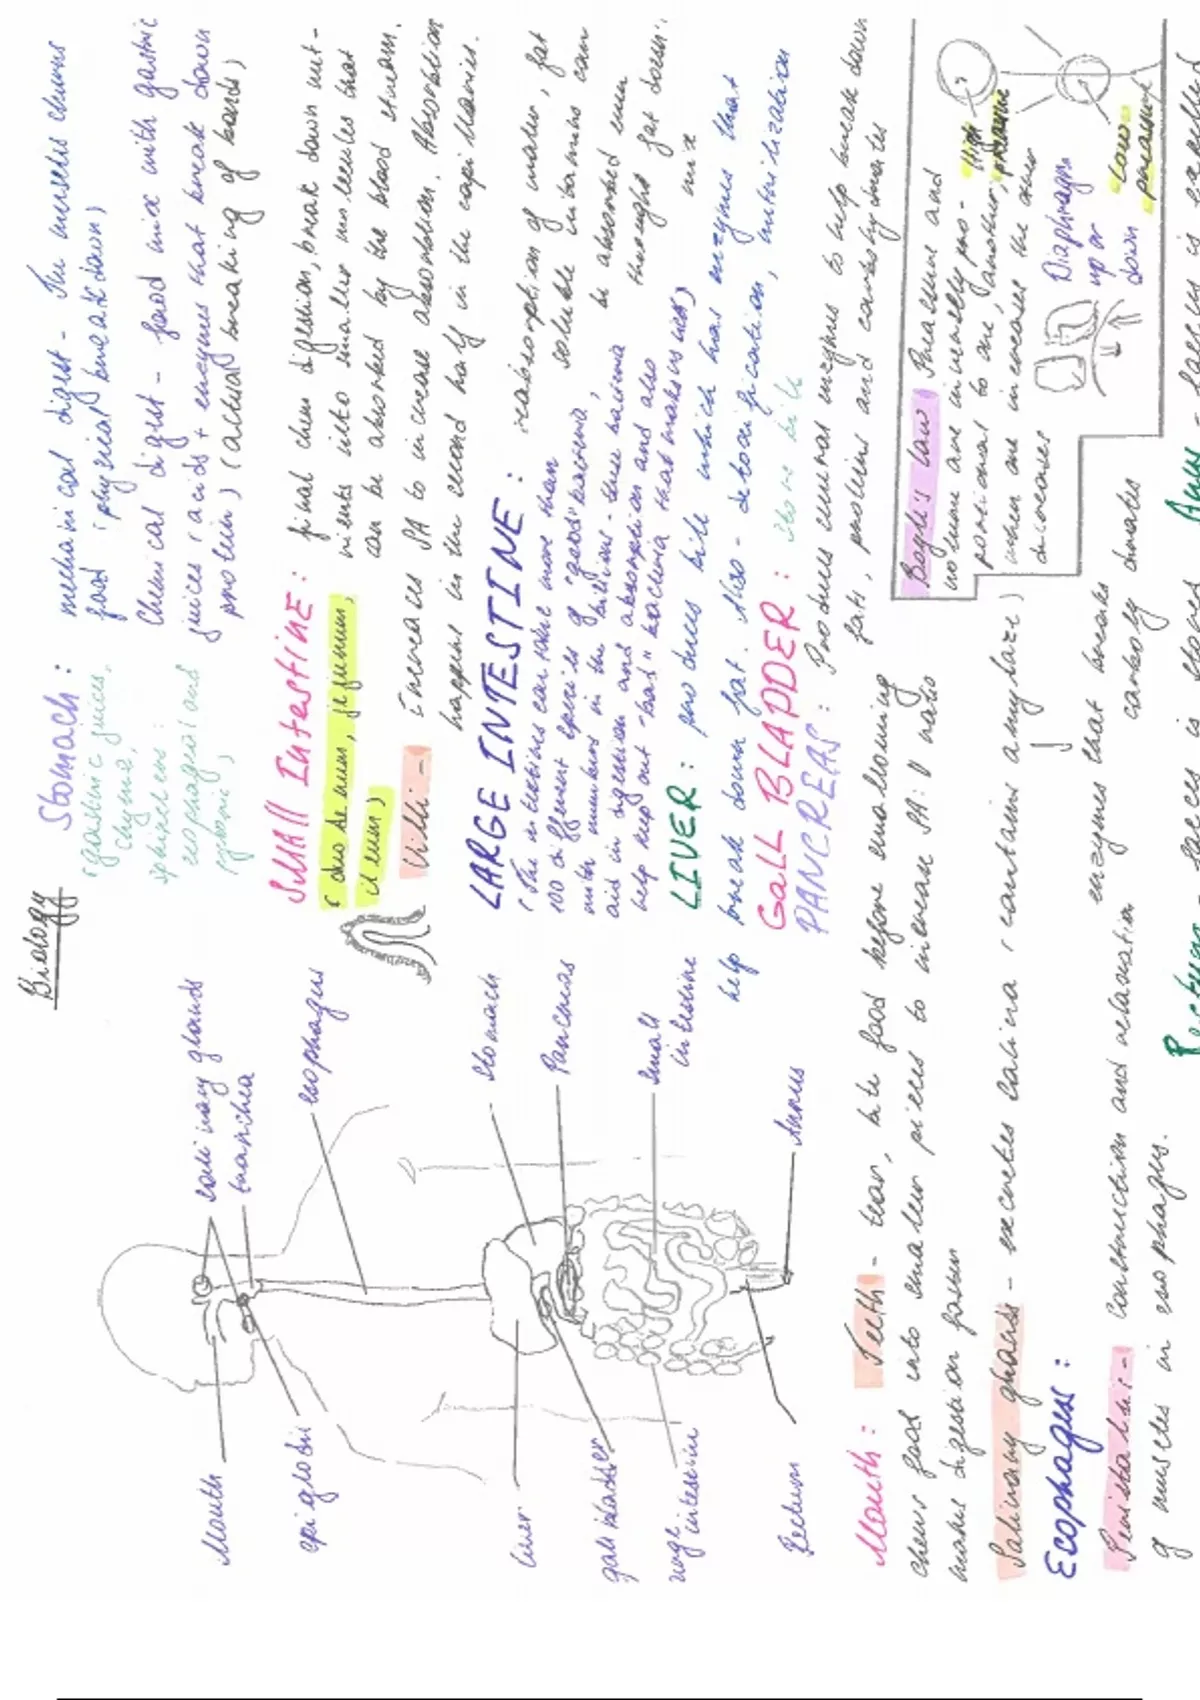 Biology
salivary glands
tranchea
esophagus
Stomach
Pancreas
Small
intestine
Annus
Mouth
epiglodis
Liver
gall bladder
intestin
Rectum
Mouth: Teeth - tear, bite food before swallowing
chews food into smaller pieces to increase SA:V ratio
makes digestion faster
Salivary glands - secretes saliva (contains amylaze)
enzymes that breaks
down
Ecophages:
Peristalsis:- Contraction and relaxation
of muscles in esophagus.
Stomach: mechanical digest - The muscles churns
food (physical break down)
(gastric juices,
chyme,
sphincters:
esophageal and
pyloric)
Chemical digest - food mix with gastric
juices (acids + enzymes that break down
protein) (actual breaking of bonds)
SMAll Intestine: final chem digestion, break down nut-
rients into smaller molecules that
can be absorbed by the blood stream.
(duodenum, jejunum,
ileum)
Villi - increaces SA to increase absorbtion. Absorbtion
happens in the second half in the capillaries.
LARGE INTESTINE: reabsorption of water, fat
soluble vitamins can
be absorbed even
through fat doesn't
mix
(The intestines can have more than
100 different species of "good" bacteria,
with numbers in the billions - these bacteria
aid in digestion and absorption and also
help keep out "bad" bacteria that makes us sick)
LIVER: produces bile which has enzymes that
help break down fat. Also - detoxification,
GALL BLADDER: store bile
PANCREAS: Produces several enzymes to help break down
fats, proteins and carbohydrates
Boyle's law Pressure and
volume are inversely pro-
portional to one another,
when one increases the other
decreases
High
pressure
Low
pressure
Diaphragm
up or
down
Rectum - faeces is stored
Anus - faeces is expelled